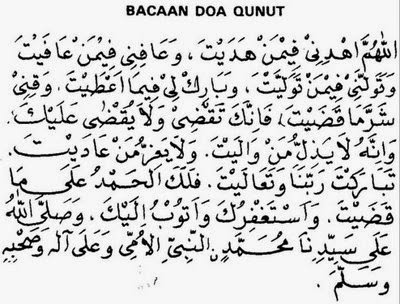 BACAAN DOA QUNUT
اَللّٰهُمَّ اهْدِنِيْ فِيْمَنْ هَدَيْتَ ، وَعَافِنِي فِيْمَنْ عَافَيْتَ
وَتَوَلَّنِيْ فِيْمَنْ تَوَلَّيْتَ ، وَبَارِكْ لِيْ فِيْمَا اَعْطَيْتَ . وَقِنِيْ
شَرَّمَا قَضَيْتَ ، فَاِنَّكَ تَقْضِيْ وَلَا يُقْضٰى عَلَيْكَ .
وَاِنَّهُ لَا يَذِلُّ مَنْ وَالَيْتَ . وَلَا يَعِزُّ مَنْ عَادَيْتَ .
تَبَارَكْتَ رَبَّنَا وَتَعَالَيْتَ . فَلَكَ الْحَمْدُ عَلَى مَا
قَضَيْتَ . وَاَسْتَغْفِرُكَ وَاَتُوْبُ اِلَيْكَ . وَصَلَّى اللّٰهُ
عَلَى سَيِّدِنَا مُحَمَّدٍ النَّبِيِّ الْاُمِّيِّ وَعَلَى آلِهِ وَصَحْبِهِ
وَسَلَّمَ .